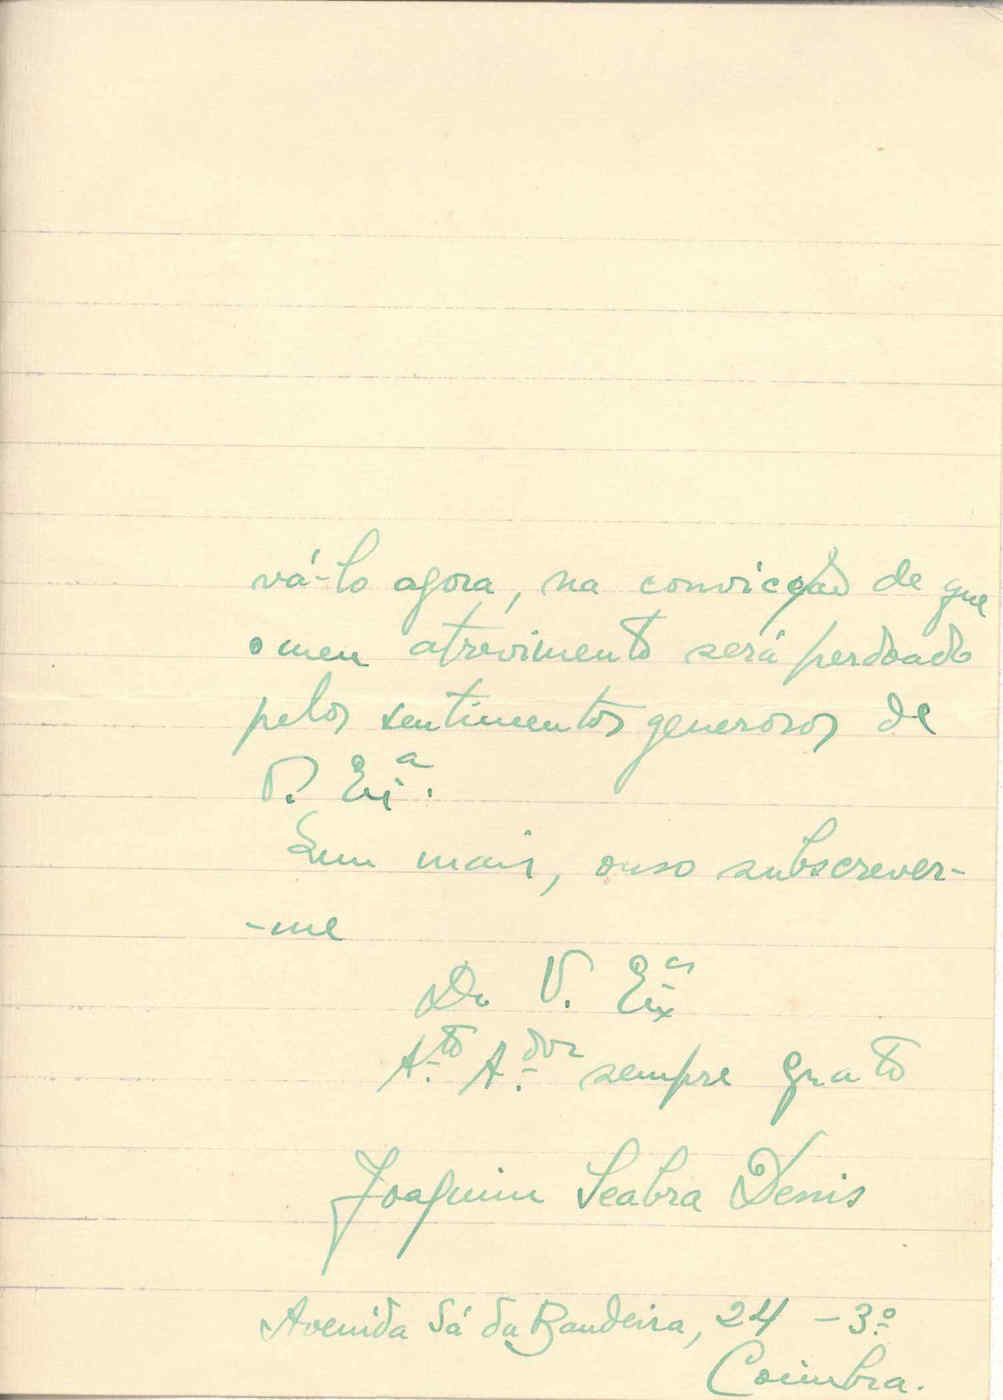 vá-lo agora, na convicção de que
o meu atrevimento será perdoado
pelos sentimentos generosos de
V. Ex.ª
Sem mais, ouso subscrever-
-me
De V. Ex.ª
At.to A.dor sempre grato
Joaquim Seabra Denis
Avenida Sá da Bandeira, 24 - 3.º
Coimbra.